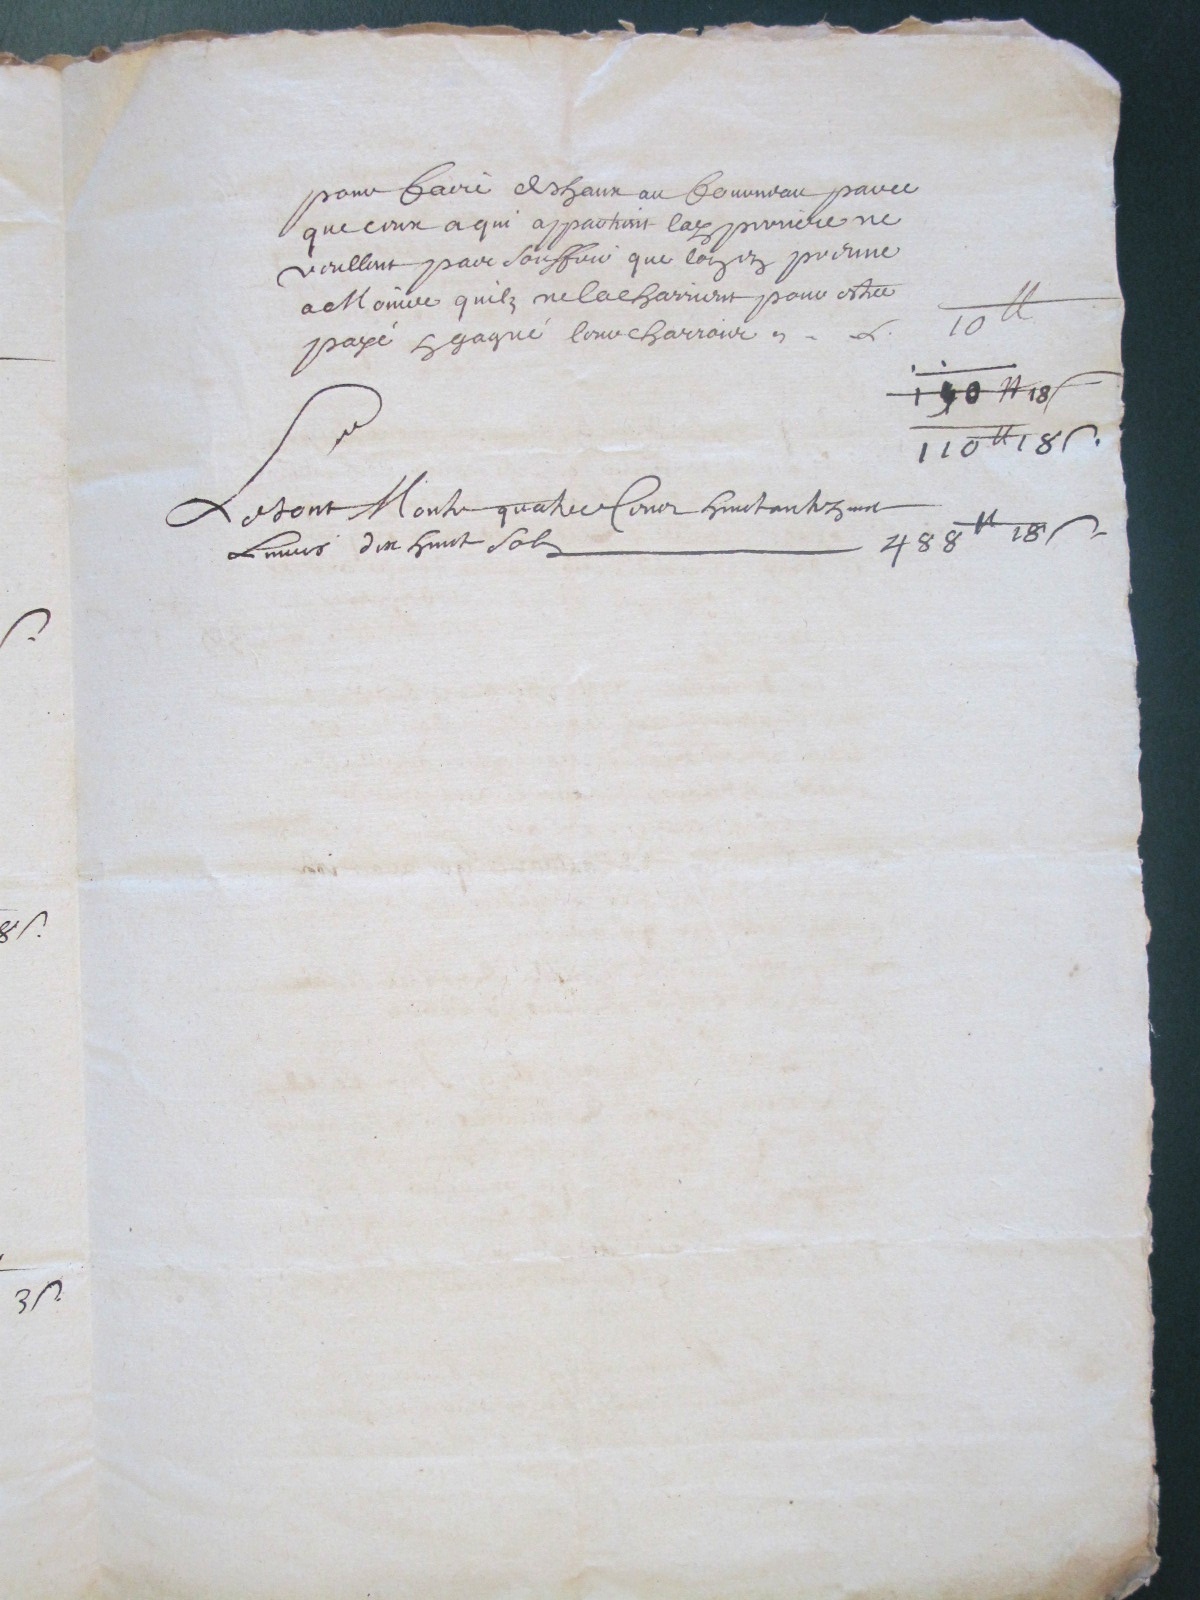 pour faire
que ceux a qui appartient lad pierriere ne
veullent pas souffrir que lon en prenne
a Moins quilz ne la charrient pour estre
payé & gagné leur charroir
10 ll
140 ll 18 s
110 ll 18 s.
Le tout Monte quatre Cens huictante huict
Livres dix huict solz
488 ll 18 s
8 s.
3 s.